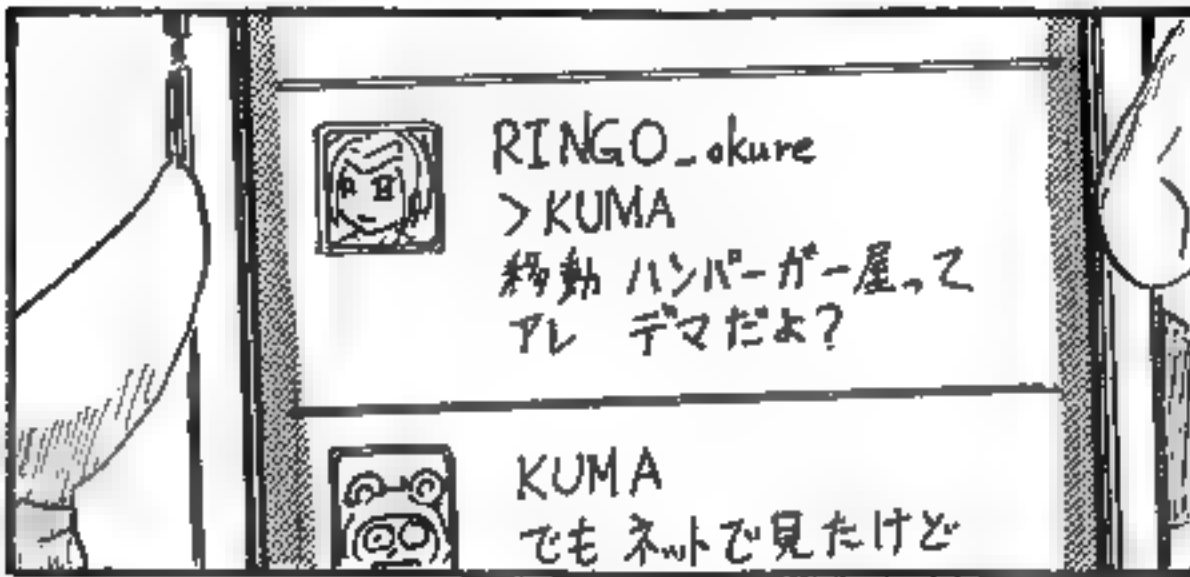 RINGO_okure
>KUMA
移動 ハンバーガー屋って
アレ デマだよ?
KUMA
でも ネットで見たけど